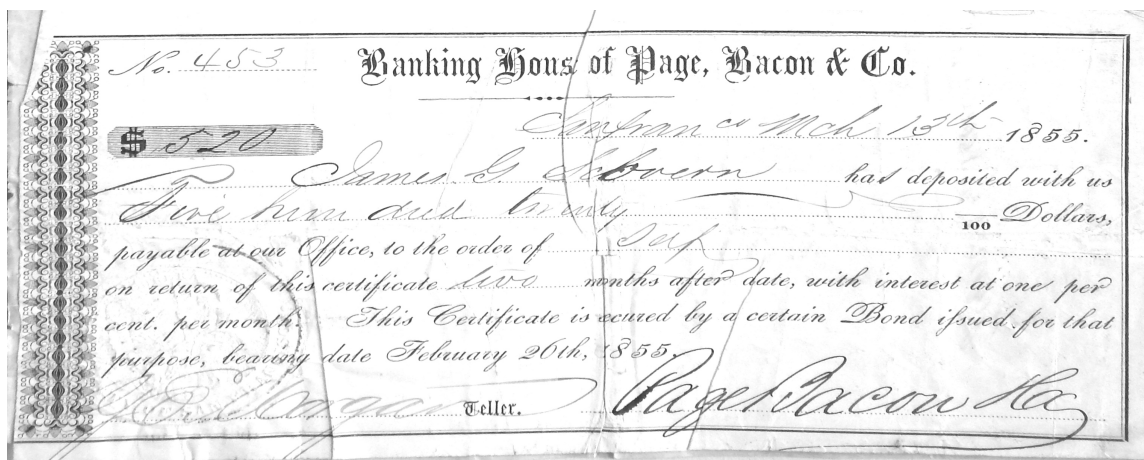 No. 453 Banking Hous of Page, Bacon & Co.
Sanfran co Mch 13th 1855.
$ 520
James G. has deposited with us
Five hun dred twenty /100 Dollars,
payable at our Office, to the order of Self
on return of this certificate two months after date, with interest at one per
cent. per month. This Certificate is ecured by a certain Bond issued for that
purpose, bearing date February 26th, 1855.
Morgan Teller. Page Bacon & Co